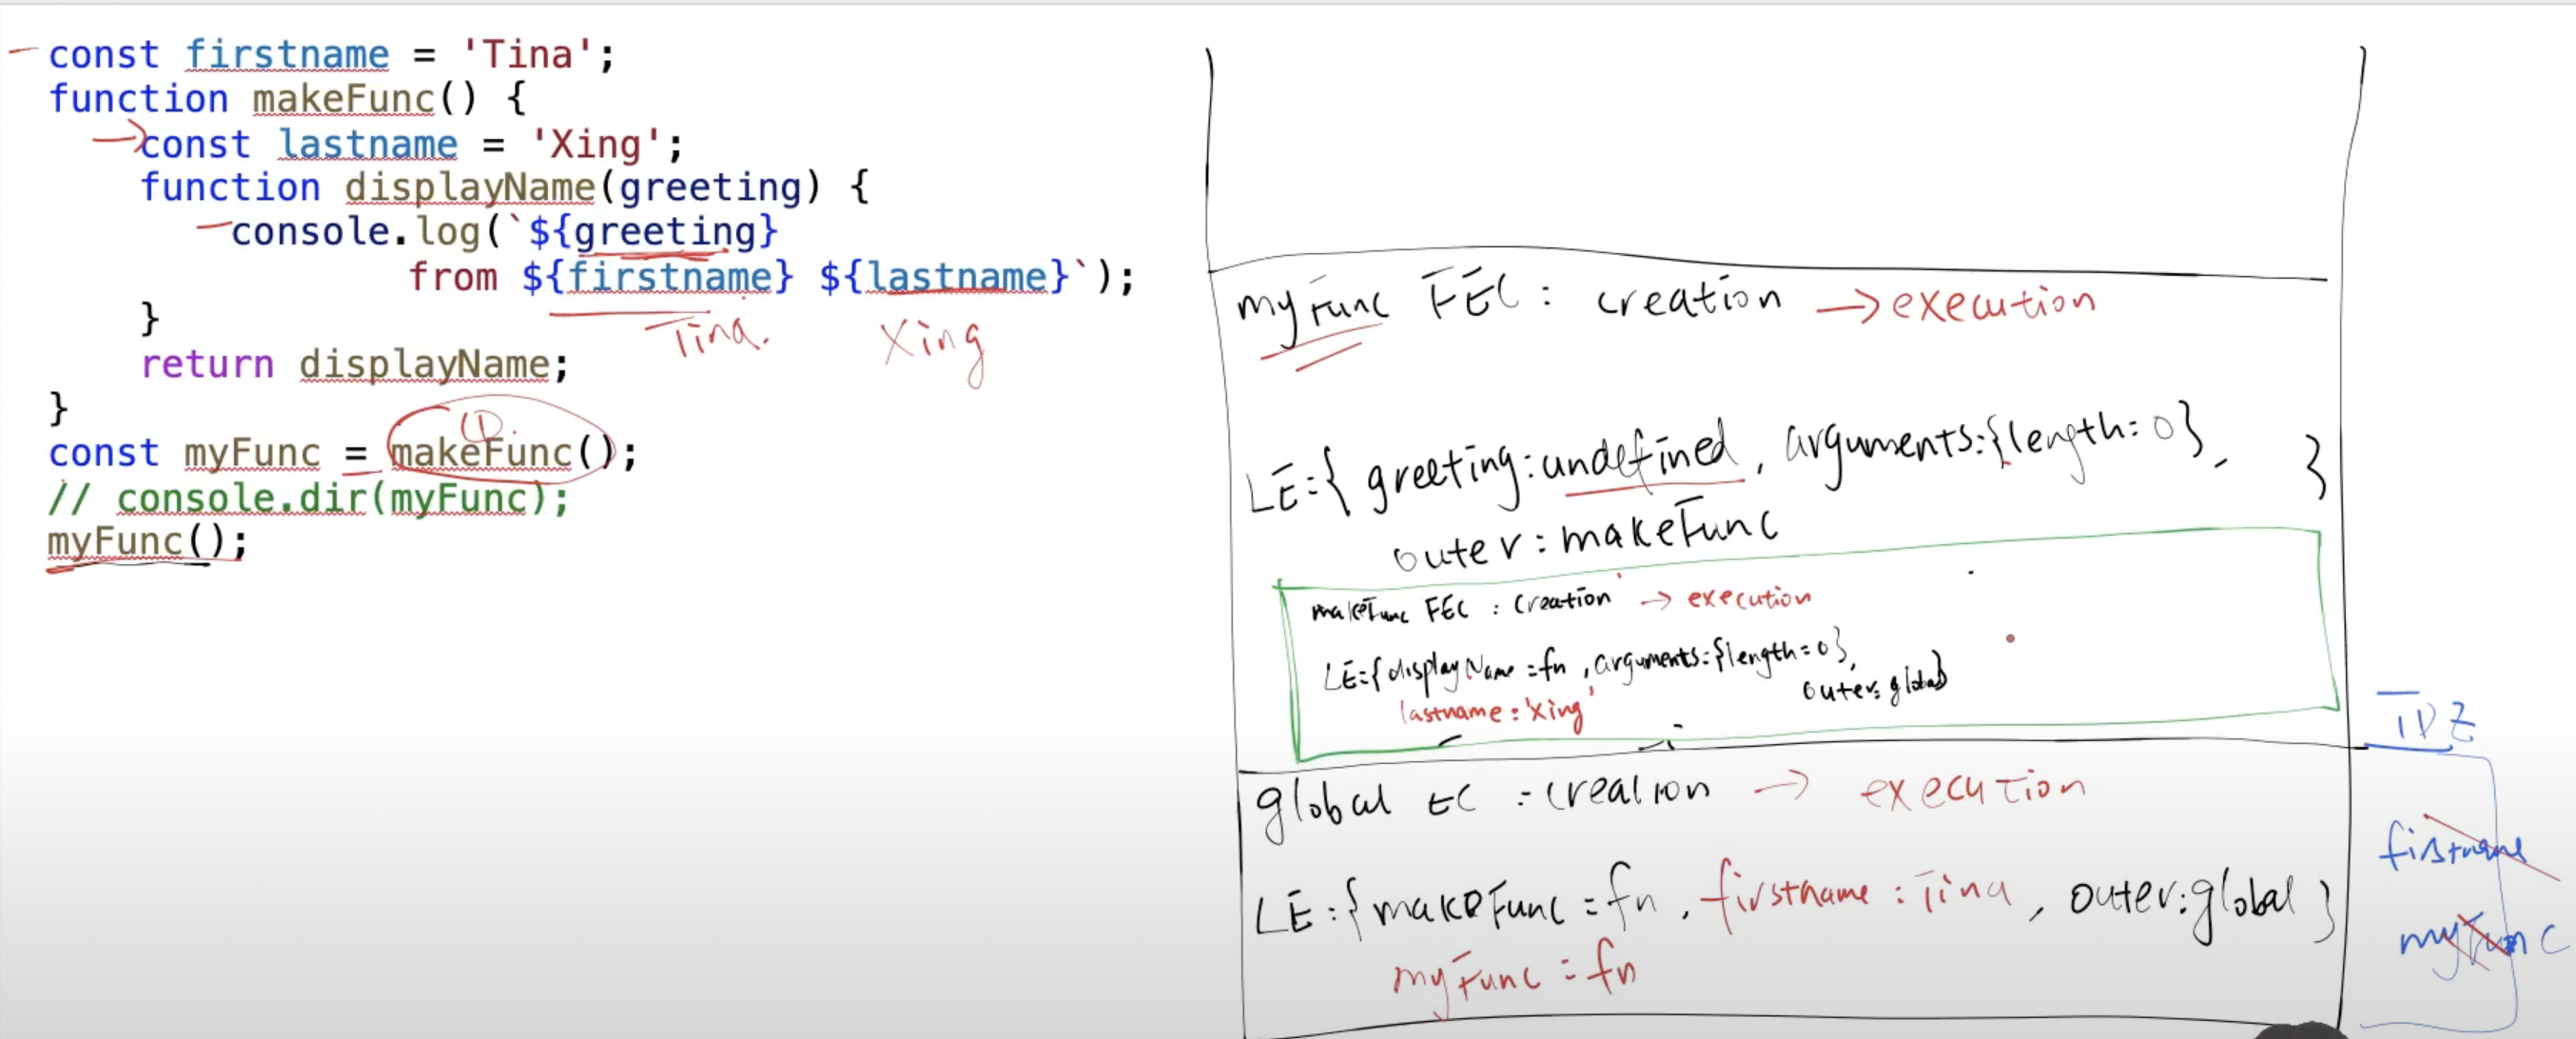 const firstname = 'Tina';
function makeFunc() {
const lastname = 'Xing';
function displayName(greeting) {
console.log(`${greeting}
from ${firstname} ${lastname}`);
}
Tina.
Xing
return displayName;
}
①
const myFunc = makeFunc();
// console.dir(myFunc);
myFunc();
myFunc FEC : creation → execution
LE:{ greeting:undefined, arguments:{length:0}, }
outer: makeFunc
makeFunc FEC : Creation → execution
LE={displayName=fn, arguments:{length=0},
lastname:'Xing' outer: global}
global EC : creation → execution
LE:{ makeFunc=fn, firstname: Tina, outer:global }
myFunc = fn
TDZ
firstname
myFunc